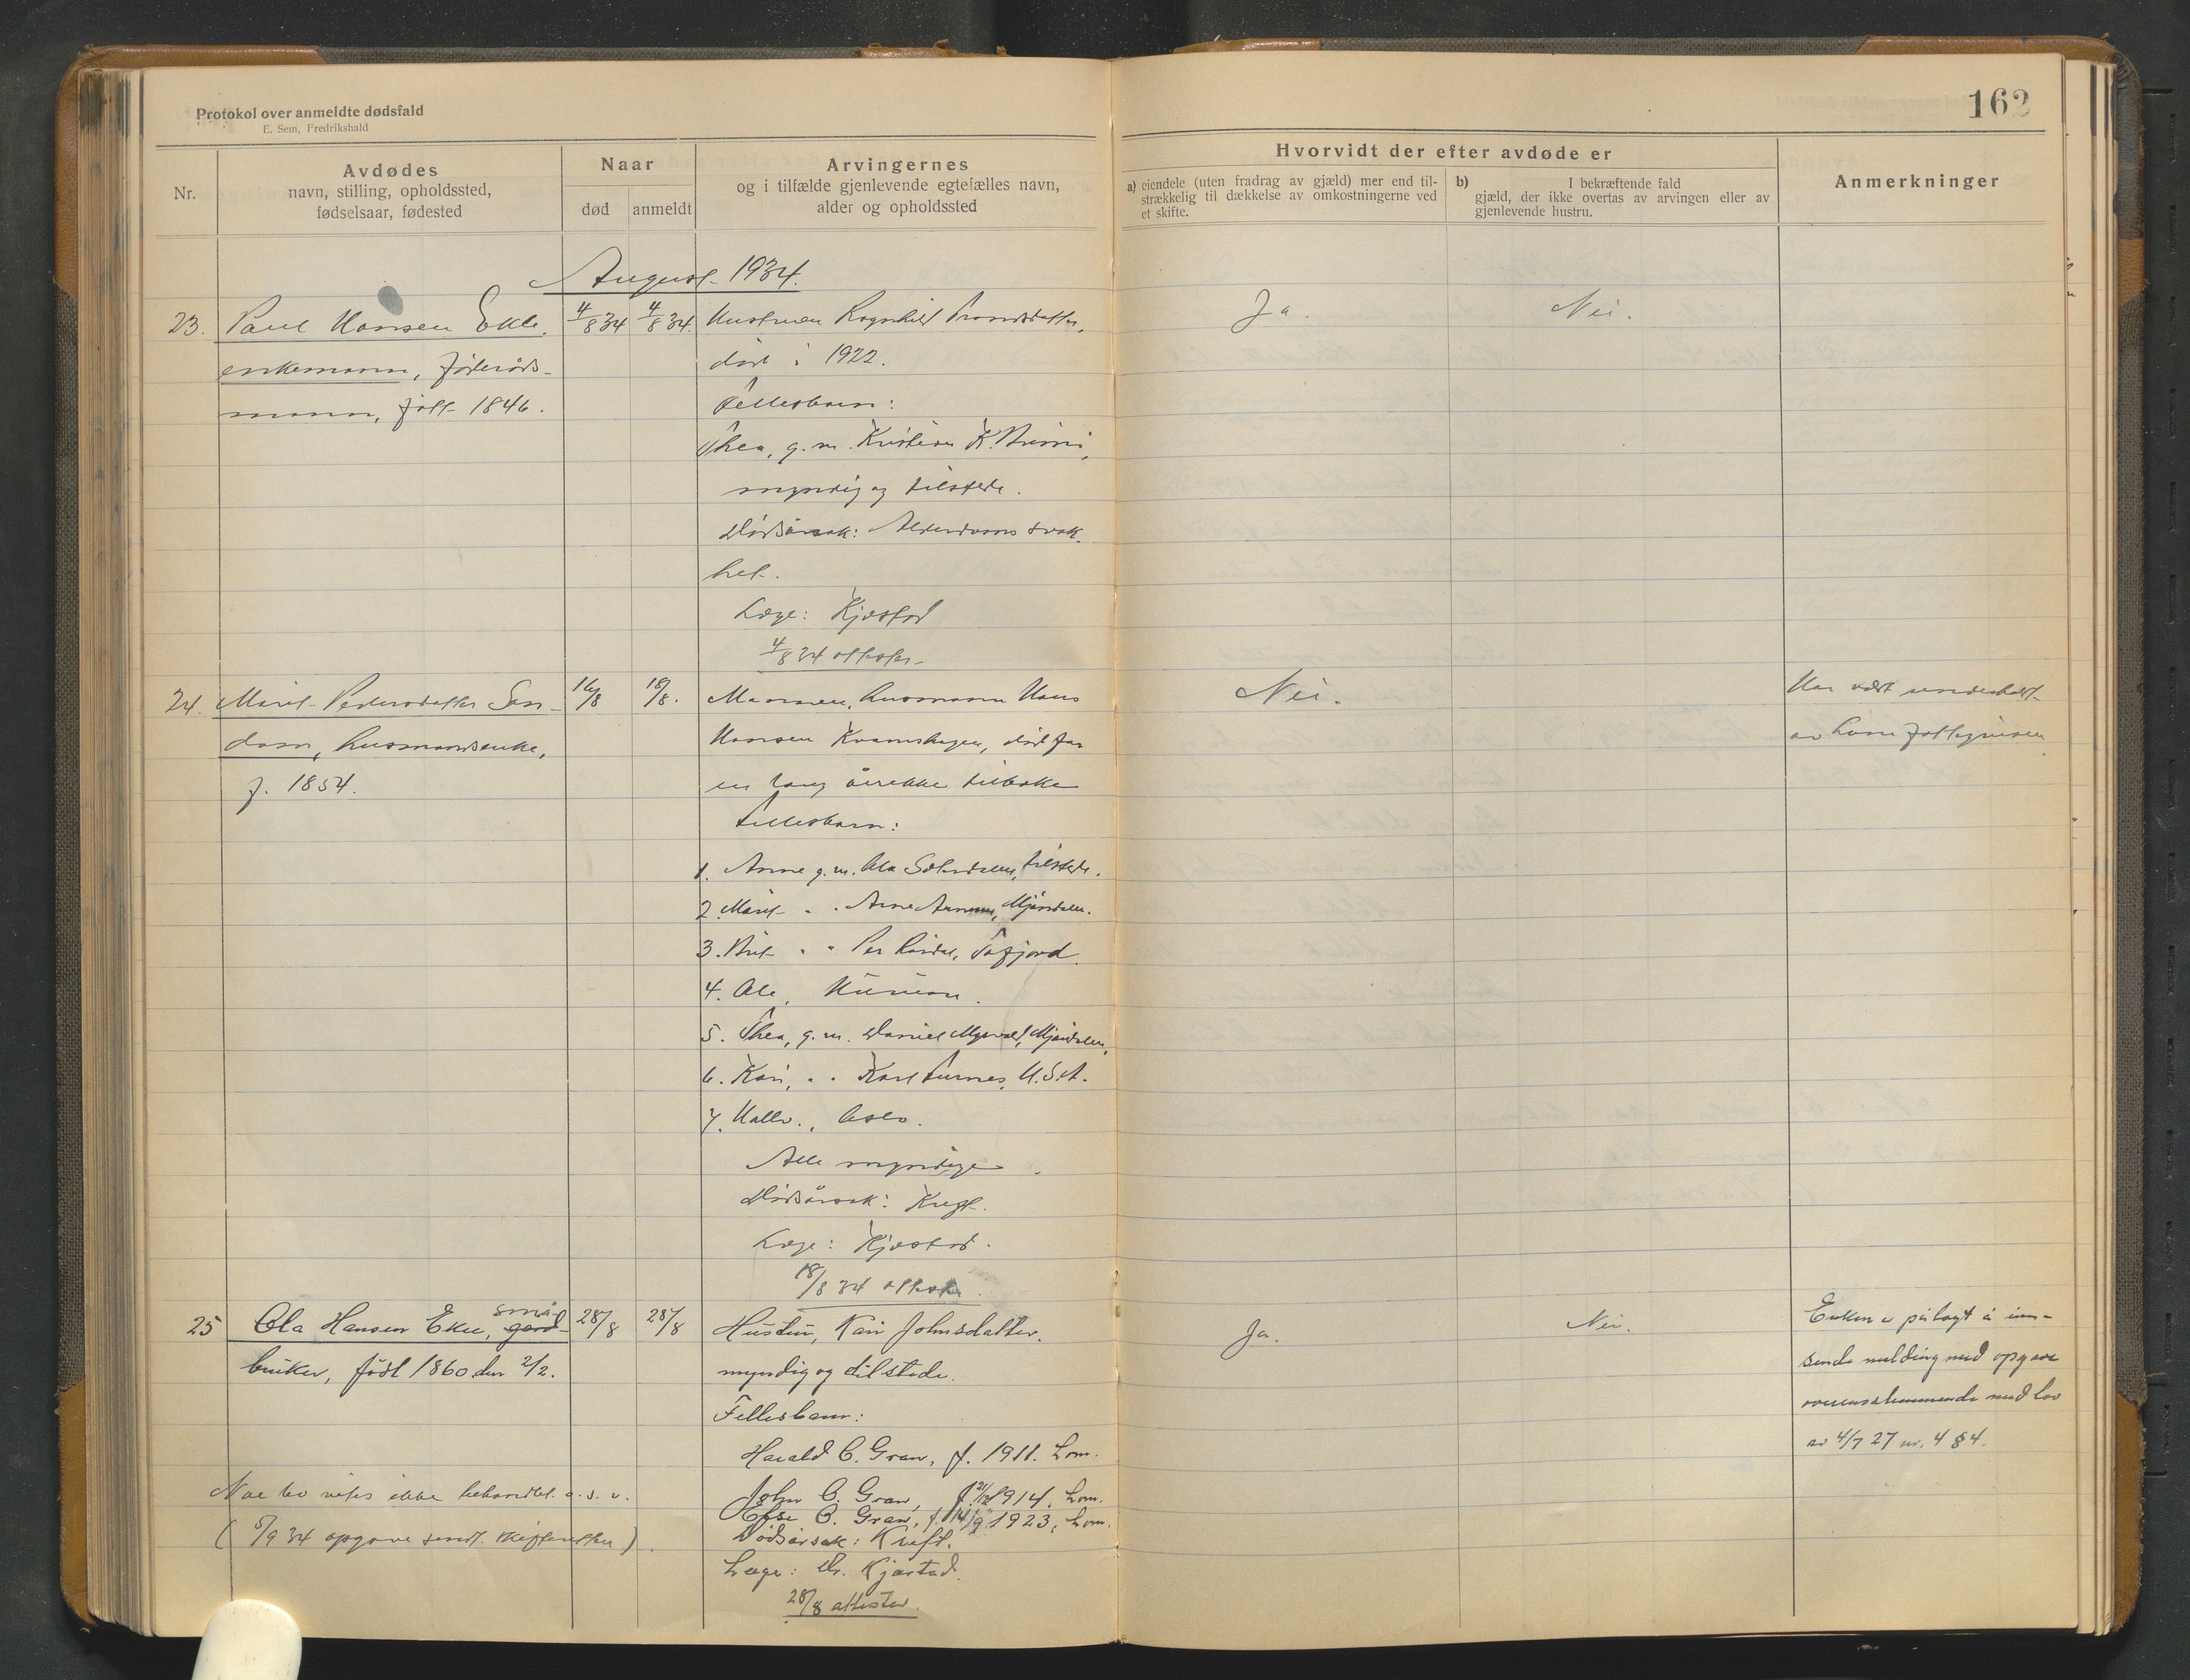 Protokol over anmeldte dødsfald
E. Sem, Fredrikshald
162
Nr.
Avdødes
navn, stilling, opholdssted,
fødselsaar, fødested
Naar
død
anmeldt
Arvingernes
og i tilfælde gjenlevende egtefælles navn,
alder og opholdssted
Hvorvidt der efter avdøde er
a) eiendele (uten fradrag av gjæld) mer end til-
strækkelig til dækkelse av omkostningerne ved
et skifte.
b) I bekræftende fald
gjæld, der ikke overtas av arvingen eller av
gjenlevende hustru.
Anmerkninger
August 1934.
23. Paul Hansen Ekle,
enkemann, föderåds-
mann, født 1846.
4/8 34
4/8 34.
Hustruen Ragnhild
død i 1922.
Fellesbarn:
Thea, g.m. Kristian K.
myndig og tilstede.
Dødsårsak: Alderdoms svak-
het.
Læge: Kjøstad
4/8 34 attester
Ja.
Nei.
24. Marit Pedersdatter San-
dom, husmandsenke,
f. 1854.
16/8
18/8.
Mannen, husmann Hans
Hansen Kvamshagen, död for
en lang årrekke tilbake
Fellesbarn:
1. Anne g.m. Ola tilstede.
2. Marit " " Arne Mjøndalen.
3. Brit " " Per Tafjord.
4. Ole,
5. Thea, g.m. Daniel Mjøndalen,
6. Kari, " " Karl Furnes, U.S.A.
7. Hallv., Oslo.
Alle myndige.
Dødsårsak: Kreft.
Læge: Kjøstad.
18/8 34 attester.
Nei.
Har vært underholdt
av Lom fattigvesen
25 Ola Hansen Ekle, små
gard-
bruker, født 1860 den 2/2.
28/8
28/8
Hustru, Kari Johnsdatter.
myndig og tilstede.
Fellesbarn:
Harald O. Gran, f. 1911. Lom.
John O. Gran, f. 1914, Lom.
O. Gran, f. 1923, Lom.
Dødsårsak: Kreft.
Læge: Dr. Kjøstad.
28/8 attester.
Ja.
Nei.
Enken er pålagt å inn-
sende melding med opgave
overensstemmende med lov
av 4/7 27 nr. 4 § 4.
ikke behandlet a. s. v.
( 5/9 34 opgave sendt skifteretten ).